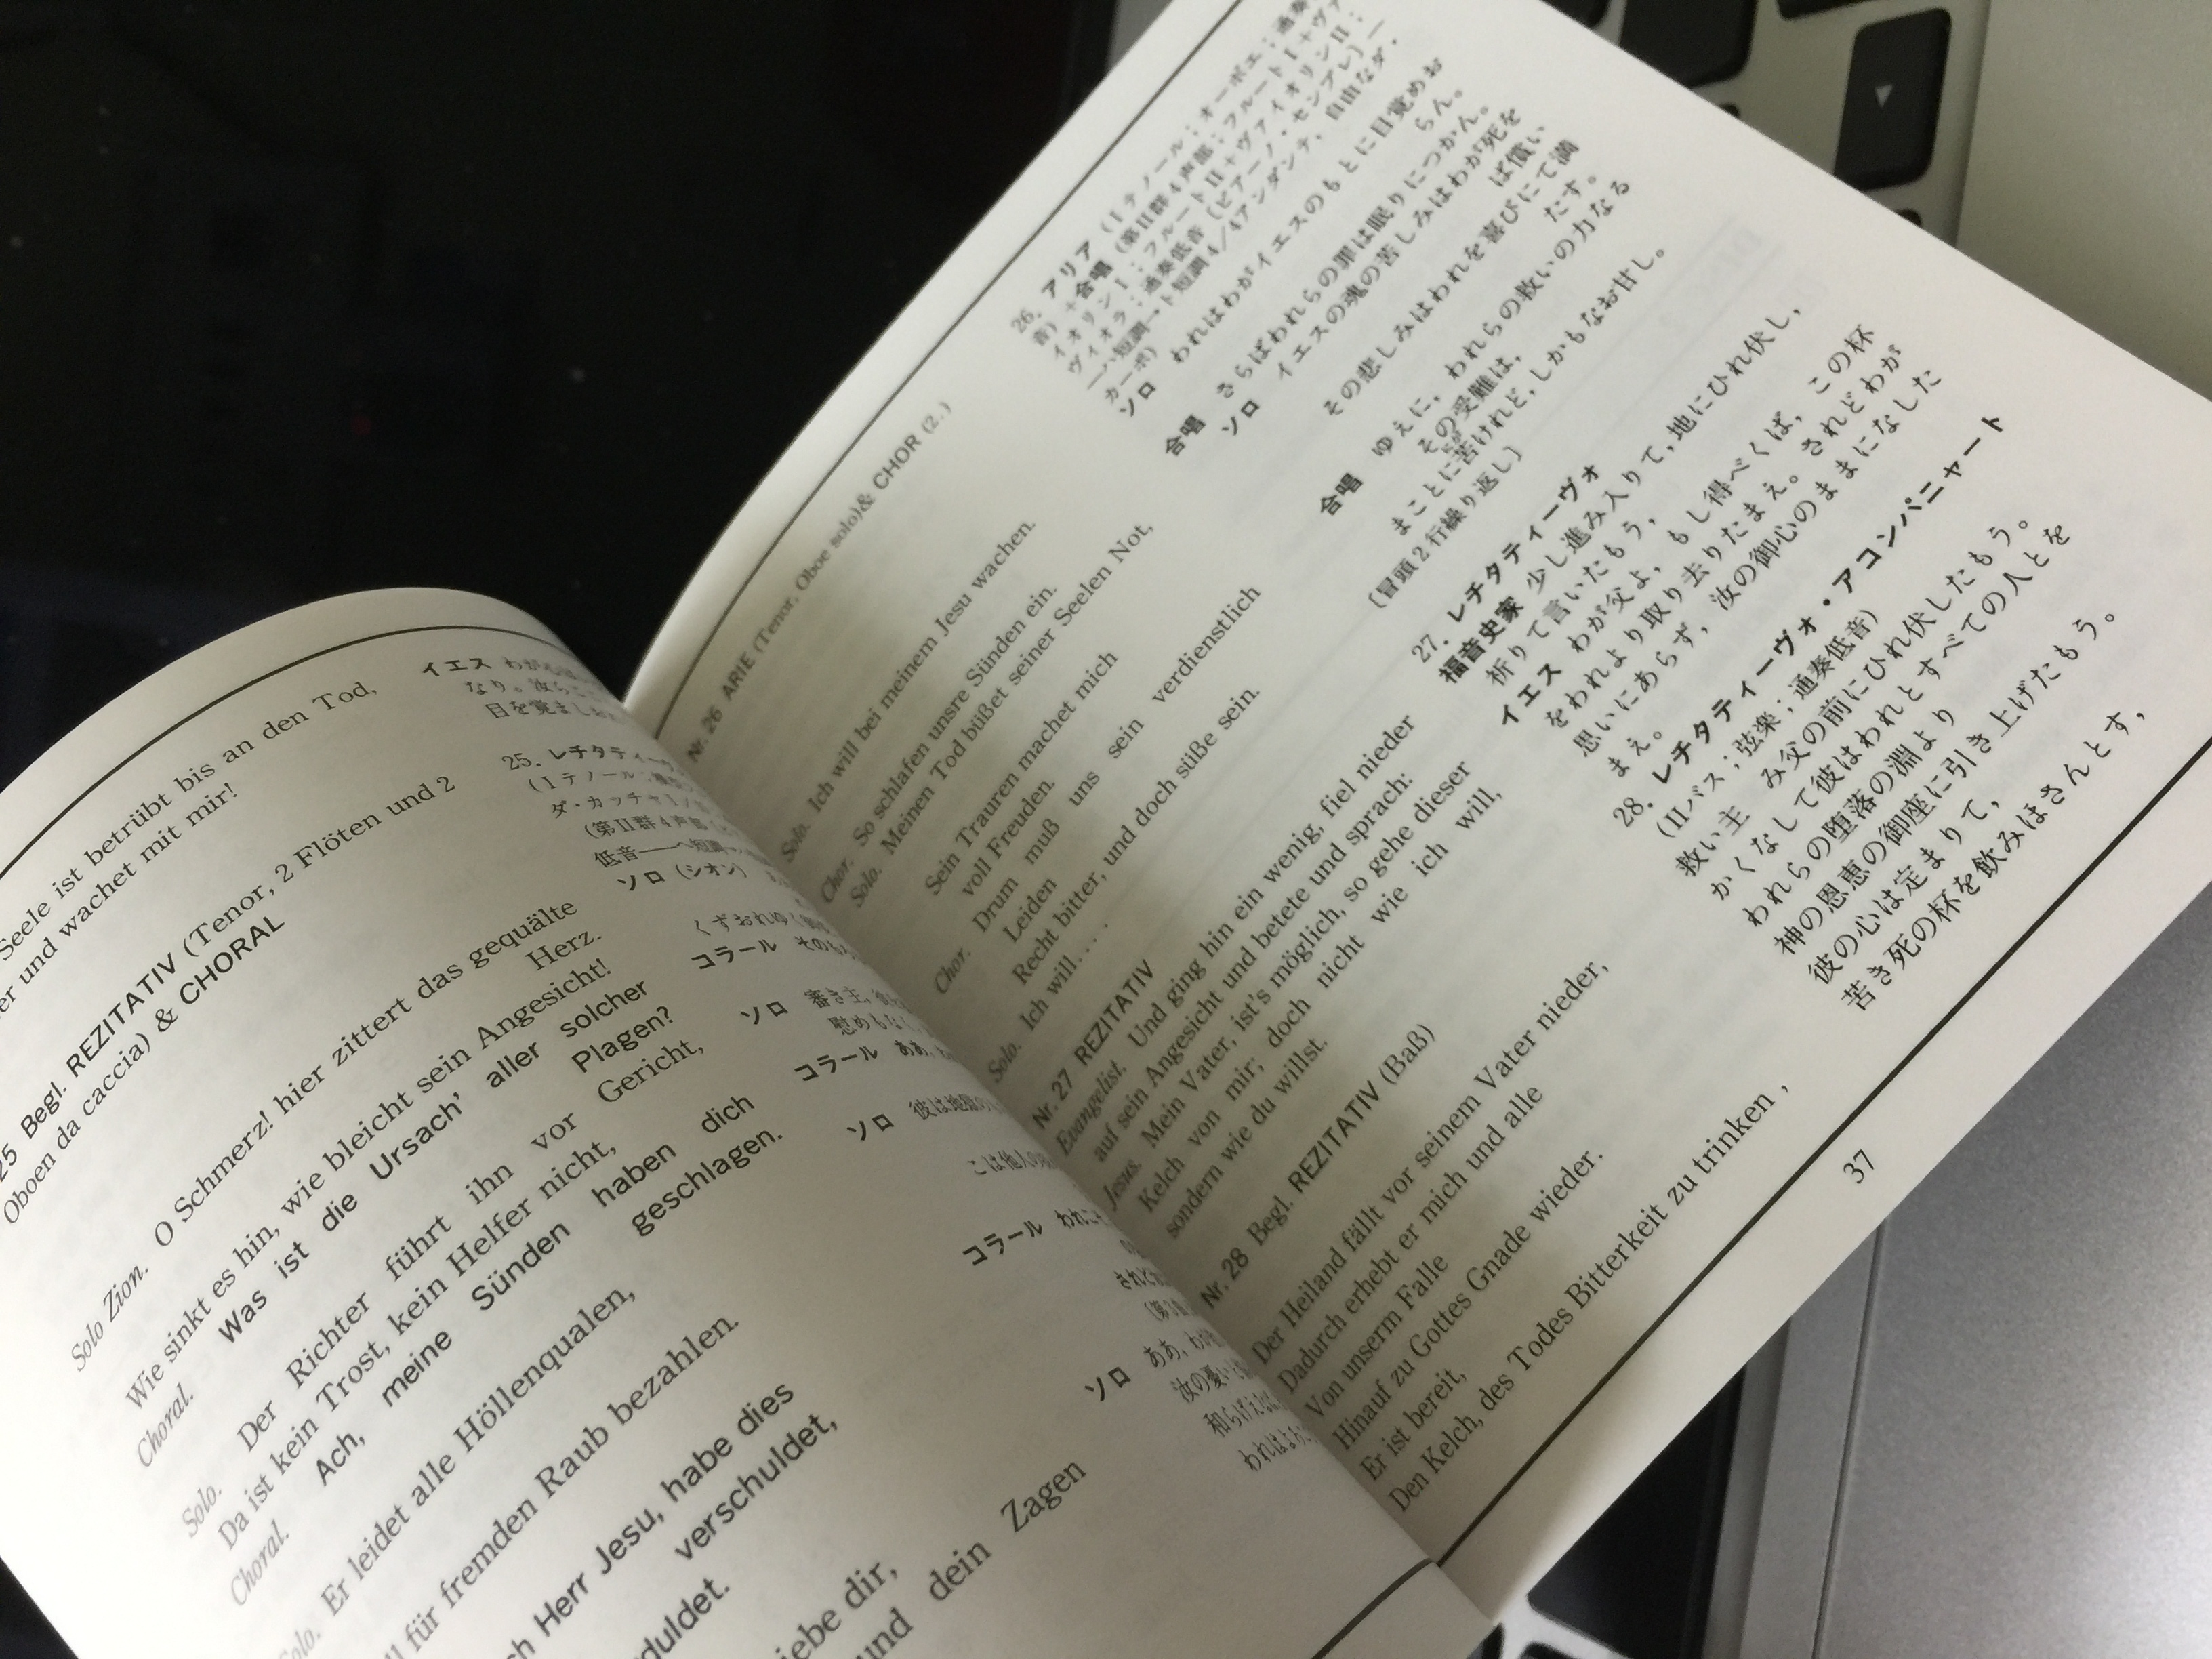 Seele ist betrübt bis an den Tod,
er und wachet mit mir!
25 Begl. REZITATIV (Tenor, 2 Flöten und 2
Oboen da caccia) & CHORAL
Solo Zion. O Schmerz! hier zittert das gequälte
Herz.
Wie sinkt es hin, wie bleicht sein Angesicht!
Choral. Was ist die Ursach' aller solcher
Plagen?
Solo. Der Richter führt ihn vor Gericht,
Da ist kein Trost, kein Helfer nicht,
Choral. Ach, meine Sünden haben dich
geschlagen.
Solo. Er leidet alle Höllenqualen,
für fremden Raub bezahlen.
Herr Jesu, habe dies
verschuldet,
duldet.
dir,
und dein Zagen
イエス
なり。
目を覚まし
25. レチタティ
(Iテノール
ダ・カッチャ
(第II群4声部
低音
ソロ (シオン)
くずおれゆく
コラール その
ソロ 審き主,
慰めもなく
コラール ああ,
ソロ 彼は地獄の
こは他人の
コラール われ
されど
ソロ ああ,
汝の憂い
和らげ
われは
Nr. 26 ARIE (Tenor, Oboe solo) & CHOR (2.)
Solo. Ich will bei meinem Jesu wachen.
Chor. So schlafen unsre Sünden ein.
Solo. Meinen Tod büßet seiner Seelen Not,
Sein Trauren machet mich
voll Freuden.
Chor. Drum muß uns sein verdienstlich
Leiden
Recht bitter, und doch süße sein.
Solo. Ich will.....
Nr. 27 REZITATIV
Evangelist. Und ging hin ein wenig, fiel nieder
auf sein Angesicht und betete und sprach:
Jesus. Mein Vater, ist's möglich, so gehe dieser
Kelch von mir; doch nicht wie ich will,
sondern wie du willst.
Nr. 28 Begl. REZITATIV (Baß)
Der Heiland fällt vor seinem Vater nieder,
Dadurch erhebt er mich und alle
Von unserm Falle
Hinauf zu Gottes Gnade wieder.
Er ist bereit,
Den Kelch, des Todes Bitterkeit zu trinken ,
26. アリア (Iテノール；オーボエ；通奏
音)＋合唱 (第II群4声部；フルートI＋ヴァ
イオリンI；フルートII＋ヴァイオリンII；
ヴィオラ；通奏低音〔ピアーノ・センプレ〕—
—ハ短調→ト短調4/4アンダンテ，自由なダ・
カーポ)
ソロ われはわがイエスのもとに目覚めお
らん。
合唱 さらばわれらの罪は眠りにつかん。
ソロ イエスの魂の苦しみはわが死を
ば償い
その悲しみはわれを喜びにて満
たす。
合唱 ゆえに，われらの救いの力なる
その受難は，
まことに苦けれど，しかもなお甘し。
〔冒頭2行繰り返し〕
27. レチタティーヴォ
福音史家 少し進み入りて，地にひれ伏し，
祈りて言いたもう，
イエス わが父よ，もし得べくば，この杯
をわれより取り去りたまえ。されどわが
思いにあらず，汝の御心のままになした
まえ。
28. レチタティーヴォ・アコンパニャート
(IIバス；弦楽；通奏低音)
救い主 み父の前にひれ伏したもう。
かくなして彼はわれとすべての人とを
われらの堕落の淵より
神の恩恵の御座に引き上げたもう。
彼の心は定まりて，
苦き死の杯を飲みほさんとす，
37